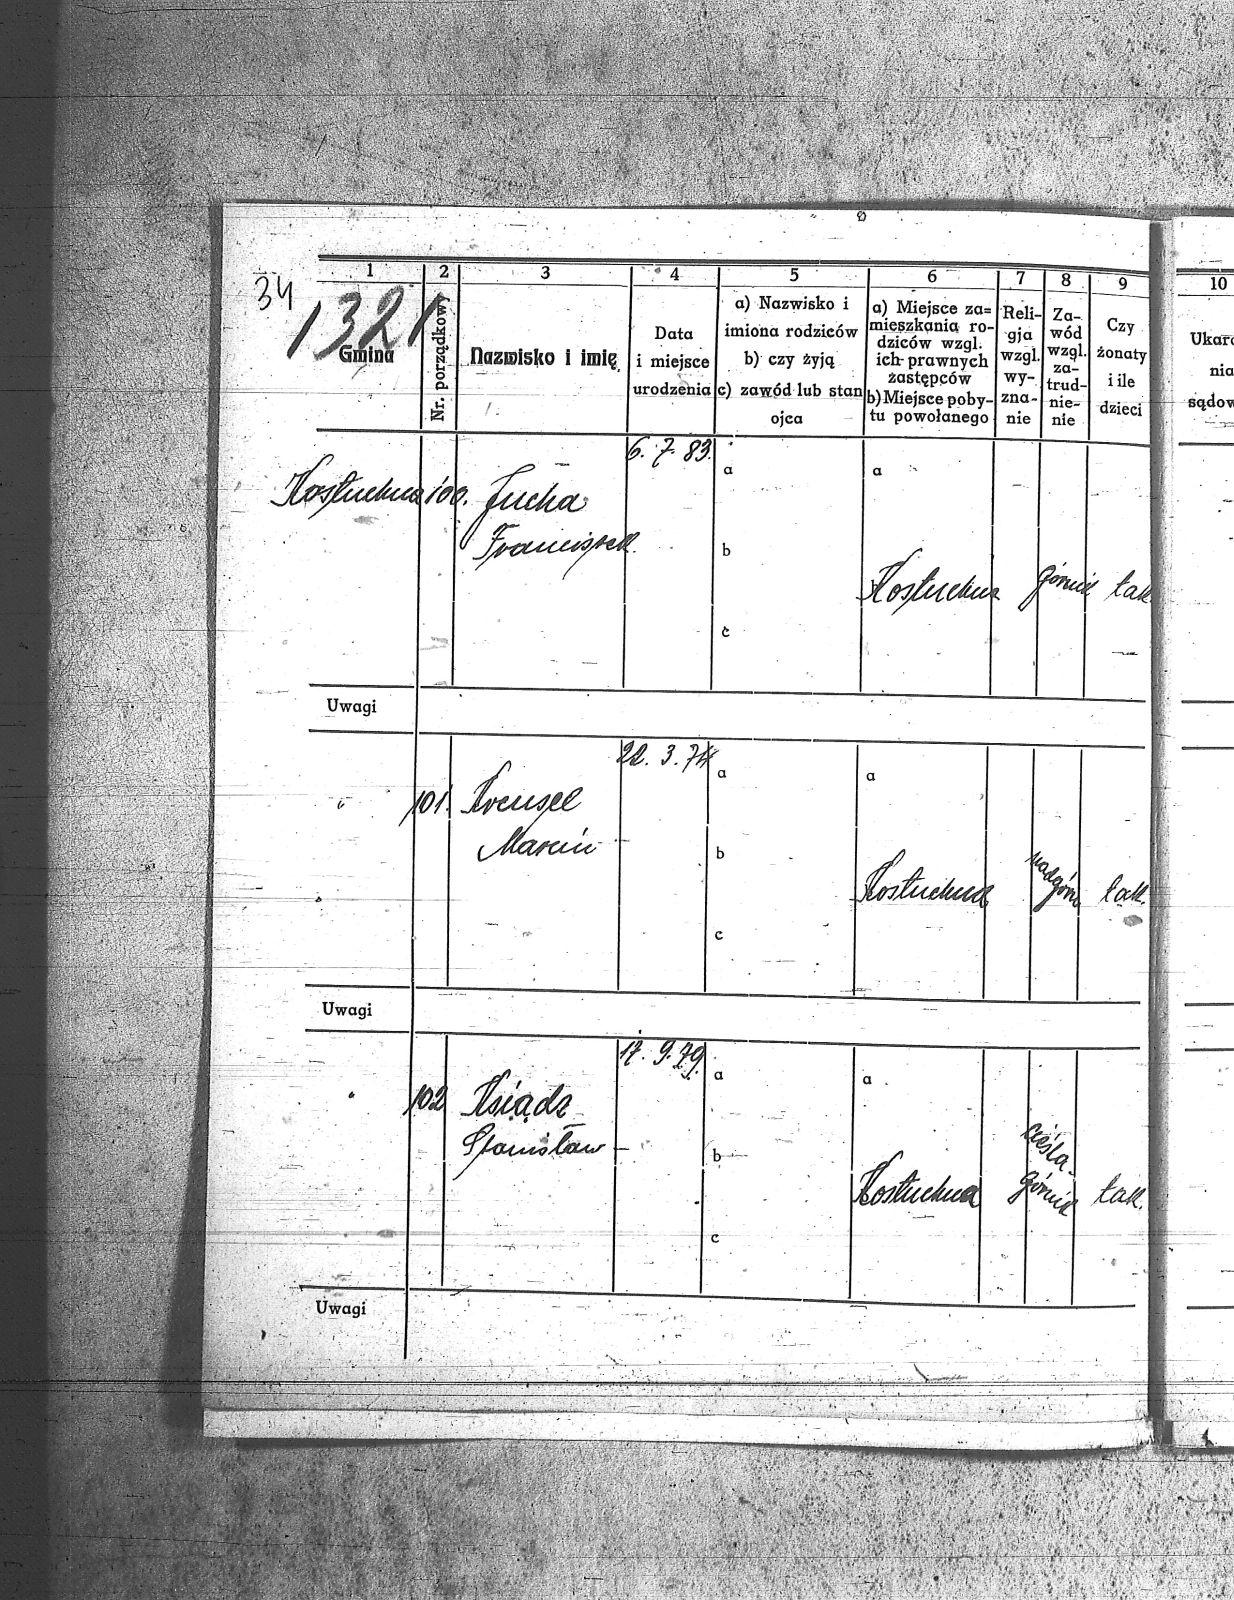 34
1321
1 2 3 4 5 6 7 8 9 10
Gmina
Nr. porządkowy
Nazwisko i imię
Data
i miejsce
urodzenia
a) Nazwisko i
imiona rodziców
b) czy żyją
c) zawód lub stan
ojca
a) Miejsce za=
mieszkania ro-
dziców wzgl.
ich prawnych
zastępców
b) Miejsce poby-
tu powołanego
Reli-
gja
wzgl.
wy-
zna-
nie
Za-
wód
wzgl.
za-
trud-
nie-
nie
Czy
żonaty
i ile
dzieci
Ukara
nia
sądow
6. 7. 83.
a a
Kostuchna 100. Jucha
Franciszek
b
Kostuchna górnik tak
c
Uwagi
22. 3. 74
a a
" 101. Krensel
Marcin
b
Kostuchna nadgórn tak.
c
Uwagi
17. 9. 79.
a a
" 102 Ksiądz
Stanisław
b
cieśla-
Kostuchna górnik tak.
c
Uwagi